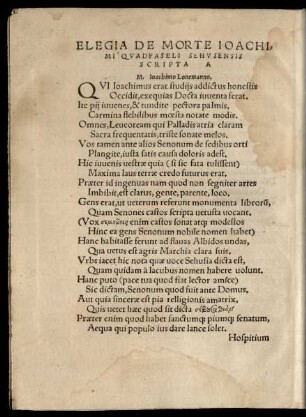 ELEGIA DE MORTE IOACHI
MI QVADFASELI SEHVSENSIS
SCRIPTA A
M. Ioachimo Lonemanno.
QVI Ioachimus erat studijs addictus honestis
Occidit, exequias Docta iuuenta ferat.
Ite pij iuuenes, & tundite pectora palmis,
Carmina flebilibus mœsta notate modis.
Omnes, Leucoream qui Palladis atria claram
Sacra frequentatis, triste sonate melos.
Vos tamen ante alios Senonum de sedibus orti
Plangite, iusta satis causa doloris adest.
Hic iuuenis vestræ quia (si sic fata tulissent)
Maxima laus terræ credo futurus erat.
Præter id ingenuas nam quod non segniter artes
Imbibit, est clarus, gente, parente, loco,
Gens erat, ut ueterum referunt monumenta librorũ,
Quam Senones castos scripta uetusta uocant.
(Vox enim castos sonat atq; modestos
Hinc ea gens Senonum nobile nomen habet)
Hanc habitasse ferunt ad flauas Albidos undas,
Qua uetus est agris Marchia clara suis.
Vrbs iacet hic nota quæ uoce Sehusia dicta est,
Quam quidam à lacubus nomen habere uolunt.
Hanc puto (pace tua quod fiat lector amice)
Sic dictam, Senonum quod fuit ante Domus,
Aut quia sinceræ est pia relligionis amatrix,
Quis uetet hæc quod sit dicta
Præter enim quod habet sanctumq; piumq; senatum,
Aequa qui populo ius dare lance solet.
Hospitium